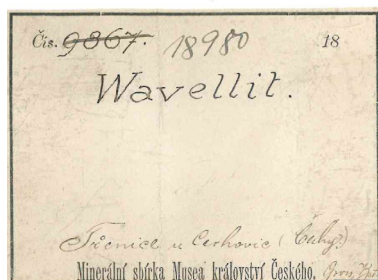 Čís. 9867. 18980 18
Wavellit.
Třenice u Cerhovic (Čechy)
Minerální sbírka Musea království Českého.